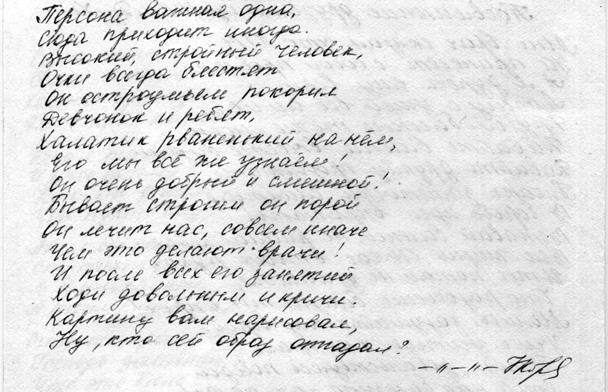 Персона важная одна,
Сюда приходит иногда.
Высокий, стройный человек,
Очи всегда блестят
Он остроумьем покорил
Девчонок и ребят,
Халатик рваненький на нём,
Его мы всё же узнаём!
Он очень добрый и смешной!
Бывает строгим он порой
Он лечит нас, совсем иначе
Чем это делают врачи!
И после всех его занятий
Ходи довольным и кричи.
Картину вам нарисовал,
Ну, кто сей образ отгадал?
–〃–〃–